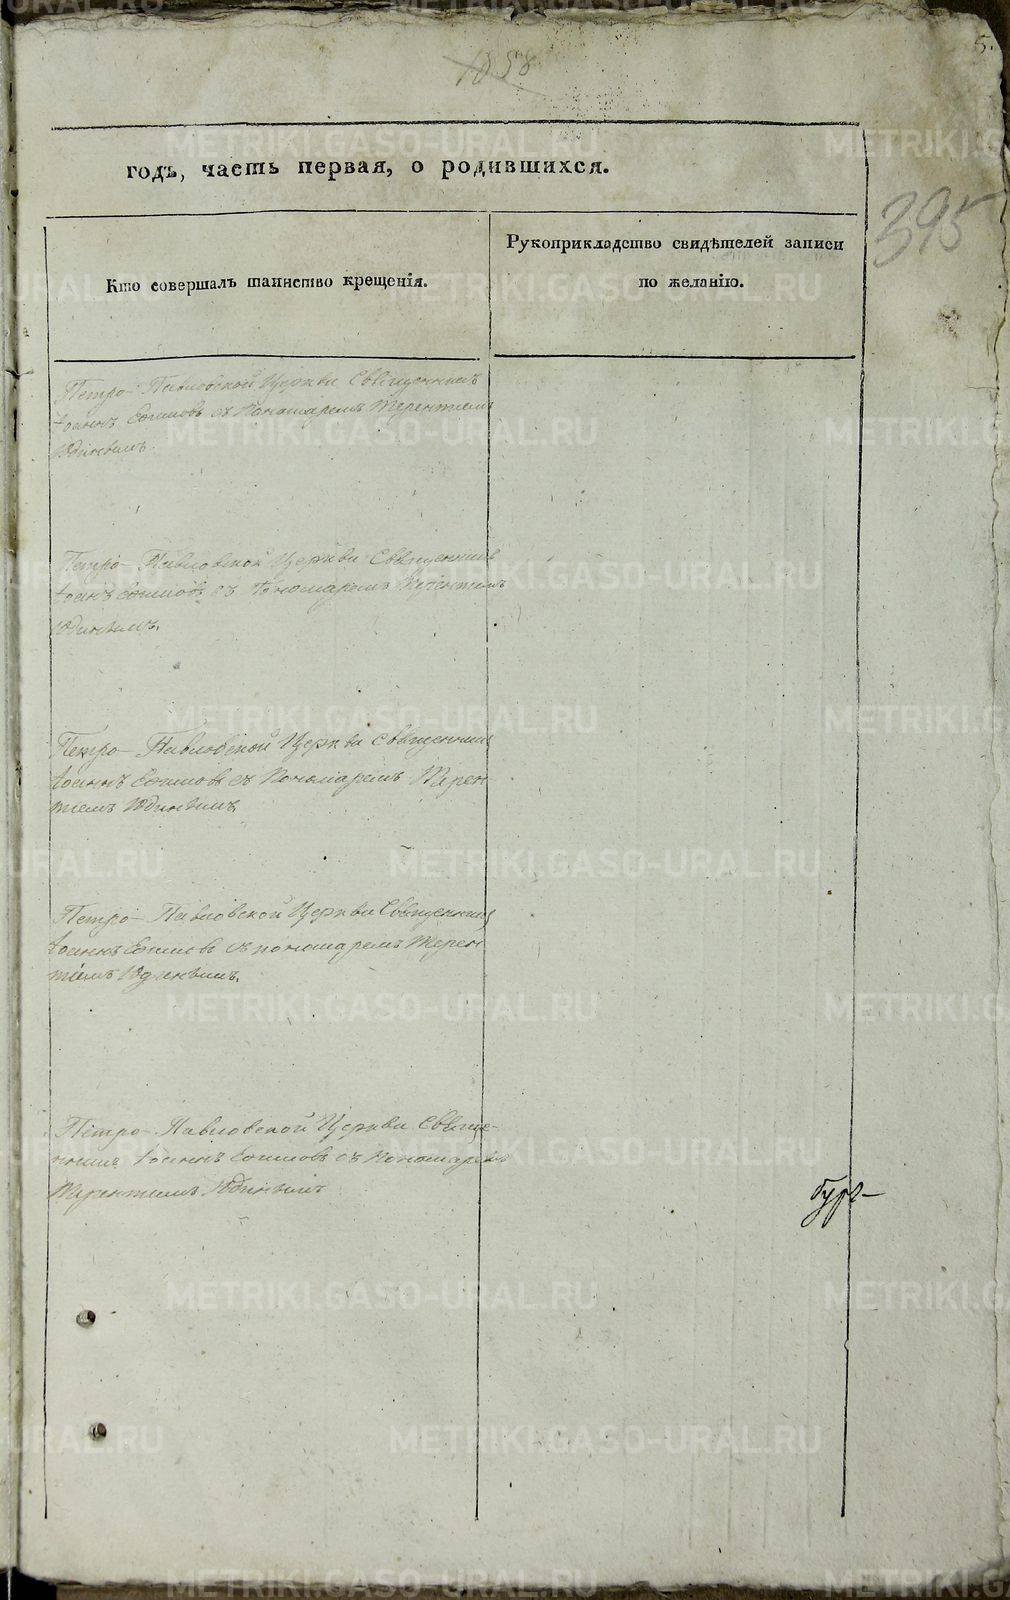 5.
1858
годъ, часть первая, о родившихся.
395
Кто совершалъ таинство крещенія.
Рукоприкладство свидѣтелей записи
по желанію.
Петро-Павловской Церкви Священникъ
Іоаннъ съ Пономаремъ Терентіемъ
Юдинымъ.
Петро-Павловской Церкви Священникъ
Іоаннъ съ Пономаремъ Терентіемъ
Юдинымъ.
Петро-Павловской Церкви Священникъ
Іоаннъ съ Пономаремъ Терен
тіемъ Юдинымъ.
Петро-Павловской Церкви Священникъ
Іоаннъ съ пономаремъ Терен
тіемъ Юдинымъ.
Петро-Павловской Церкви Свяще-
нникъ Іоаннъ съ Пономаремъ
Терентіемъ Юдинымъ
METRIKI.GASO-URAL.RU